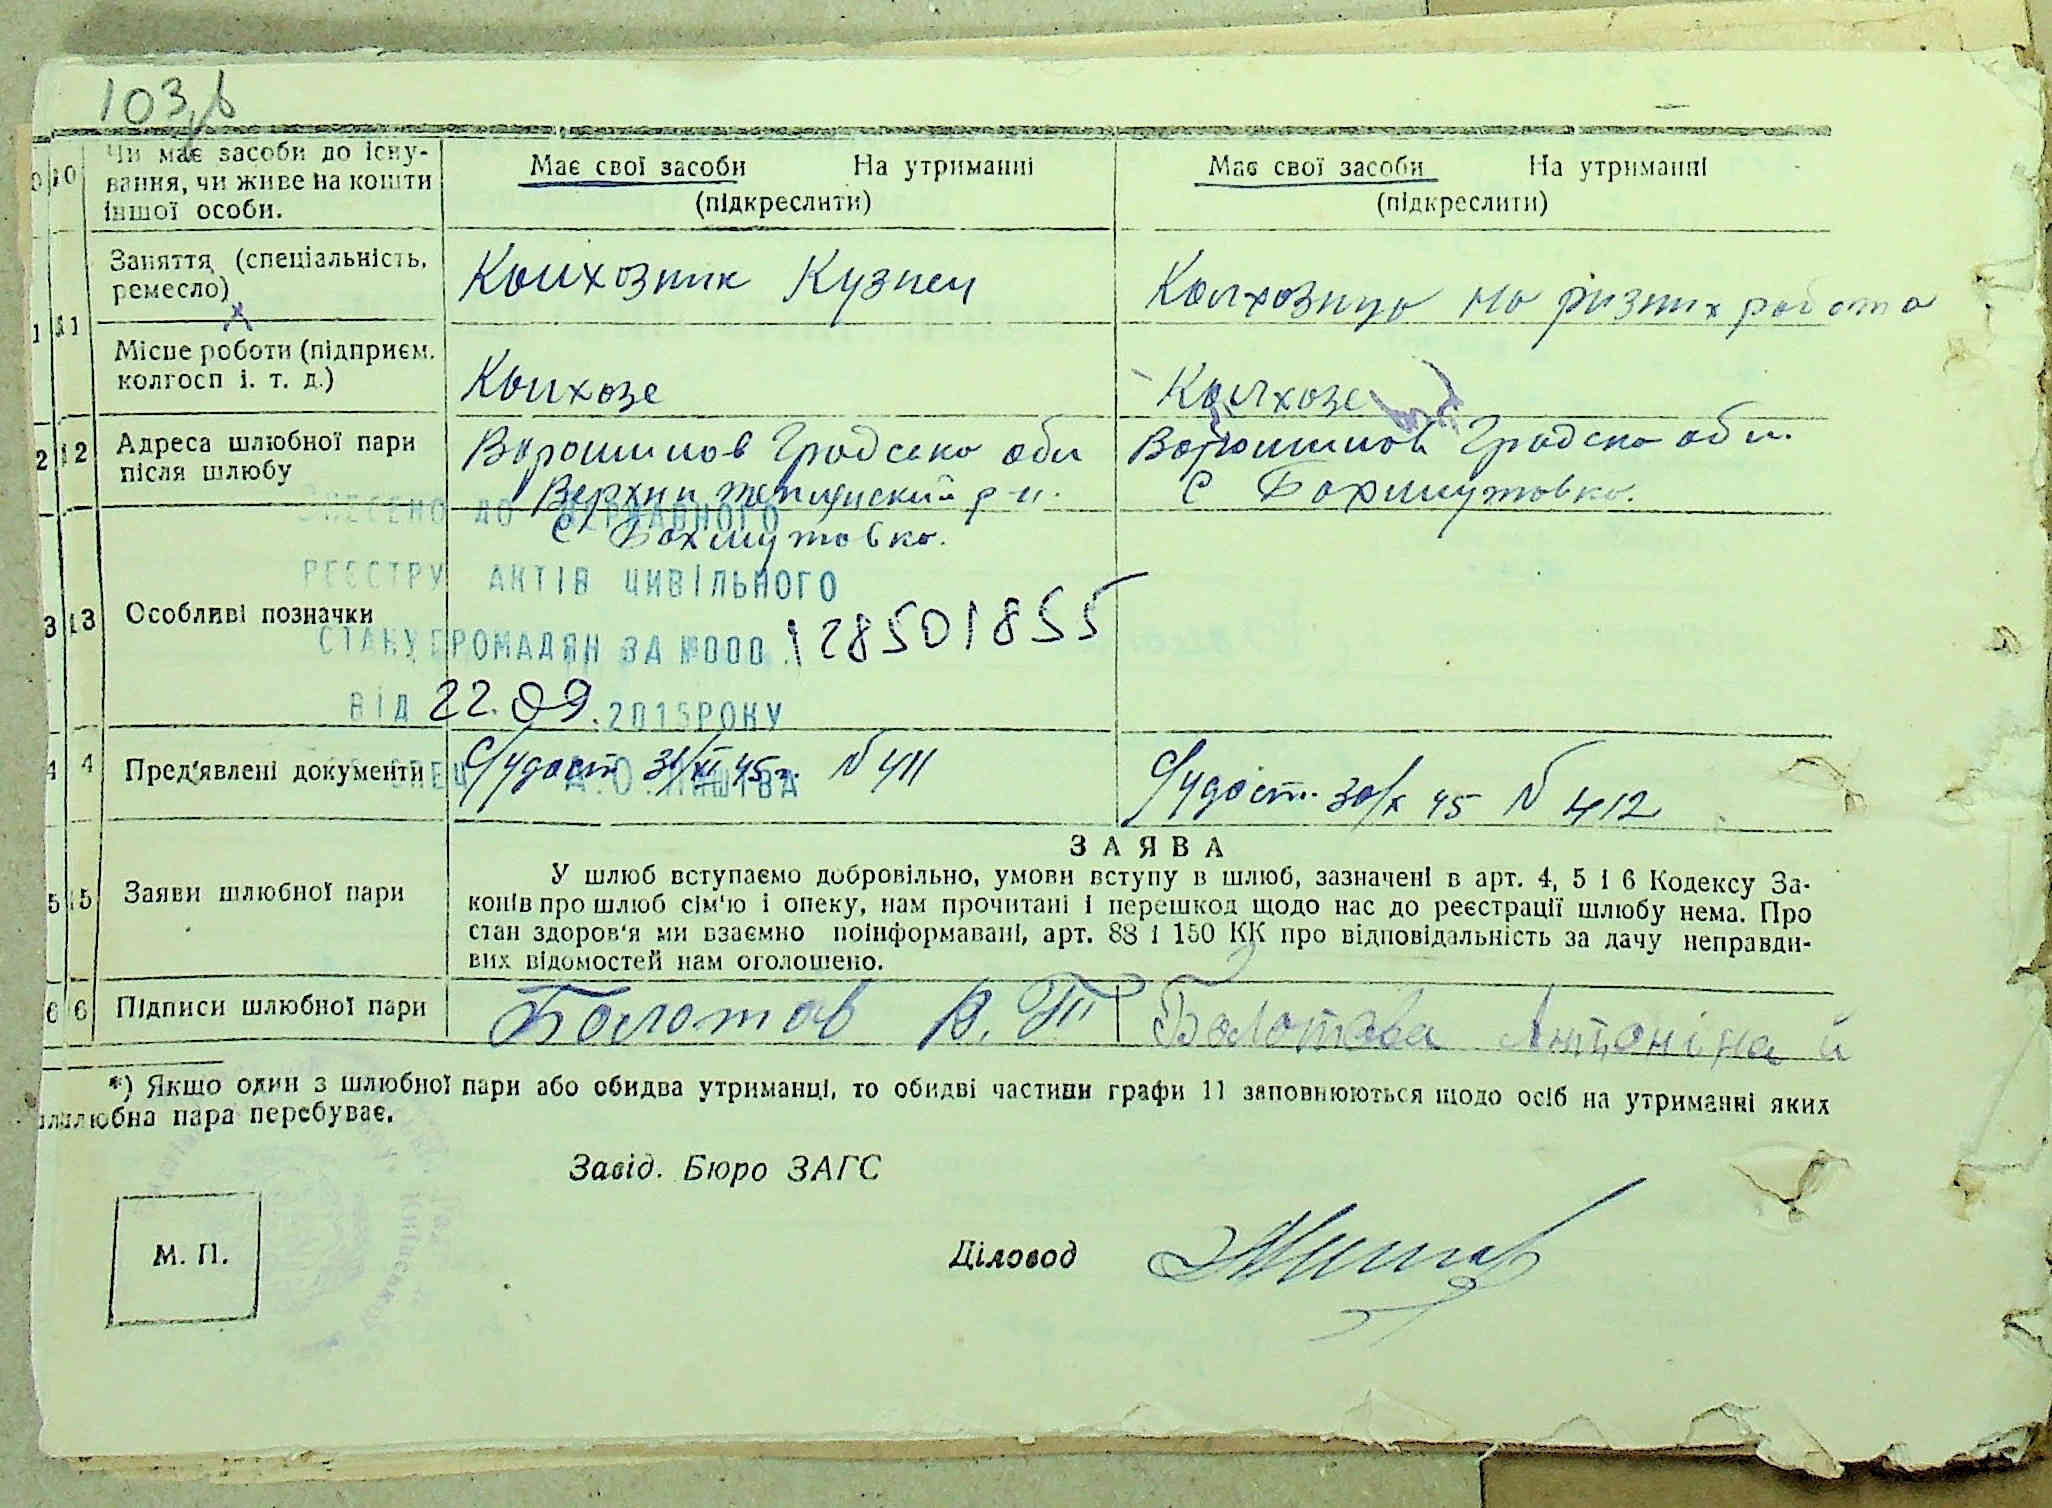 103
10 Чи має засоби до існування, чи живе на кошти іншої особи.
Має свої засоби На утриманні
(підкреслити)
Має свої засоби На утриманні
(підкреслити)
11 Заняття (спеціальність, ремесло)
Колхозник Кузнец
Колхозница на ризних работа
Місце роботи (підприєм. колгосп і. т. д.)
Колхозе
Колхозе
12 Адреса шлюбної пари після шлюбу
Ворошилов Градска обл
Верхни теплунский р-н.
С Бахмутовка.
Ворошилов Градска обл.
С Бахмутовка.
13 Особливі позначки
ВНЕСЕНО ДО ДЕРЖАВНОГО
РЕЄСТРУ АКТІВ ЦИВІЛЬНОГО
СТАНУ ГРОМАДЯН ЗА №000 128501855
ВІД 22.09.2015РОКУ
4 Пред'явлені документи
45г. N 411
30/X 45 N 412
15 Заяви шлюбної пари
ЗАЯВА
У шлюб вступаємо добровільно, умови вступу в шлюб, зазначені в арт. 4, 5 і 6 Кодексу За-
конів про шлюб сім'ю і опеку, нам прочитані і перешкод щодо нас до реєстрації шлюбу нема. Про
стан здоров'я ми взаємно поінформавані, арт. 88 і 150 КК про відповідальність за дачу неправди-
вих відомостей нам оголошено.
6 Підписи шлюбної пари
Болотов В. Т
Болотова Антоніна й
*) Якщо один з шлюбної пари або обидва утриманці, то обидві частини графи 11 заповнюються щодо осіб на утриманні яких
шлюбна пара перебуває.
Завід. Бюро ЗАГС
М. П.
Діловод